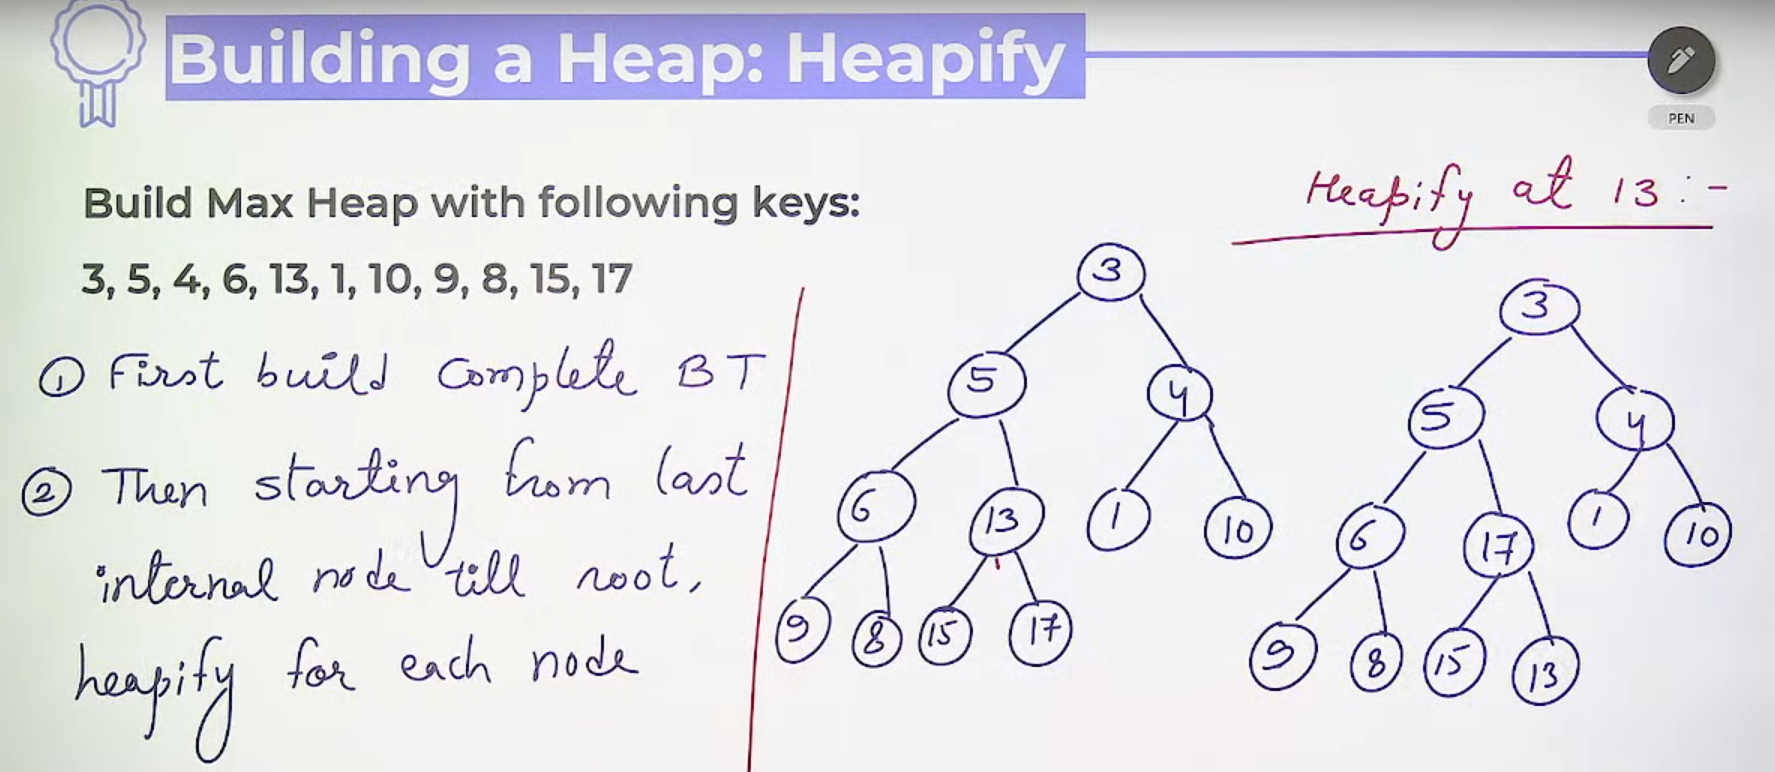 Building a Heap: Heapify
PEN
Build Max Heap with following keys:
3, 5, 4, 6, 13, 1, 10, 9, 8, 15, 17
① First build complete BT
② Then starting from last
internal node till root,
heapify for each node
Heapify at 13 :-
3
5 4
6 13 1 10
9 8 15 17
3
5 4
6 17 1 10
9 8 15 13